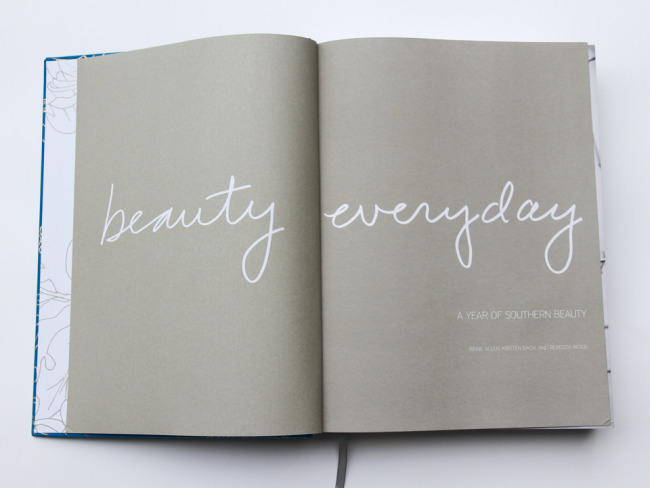 beauty everyday
A YEAR OF SOUTHERN BEAUTY
RINNE ALLEN, KRISTEN BACH, AND REBECCA WOOD